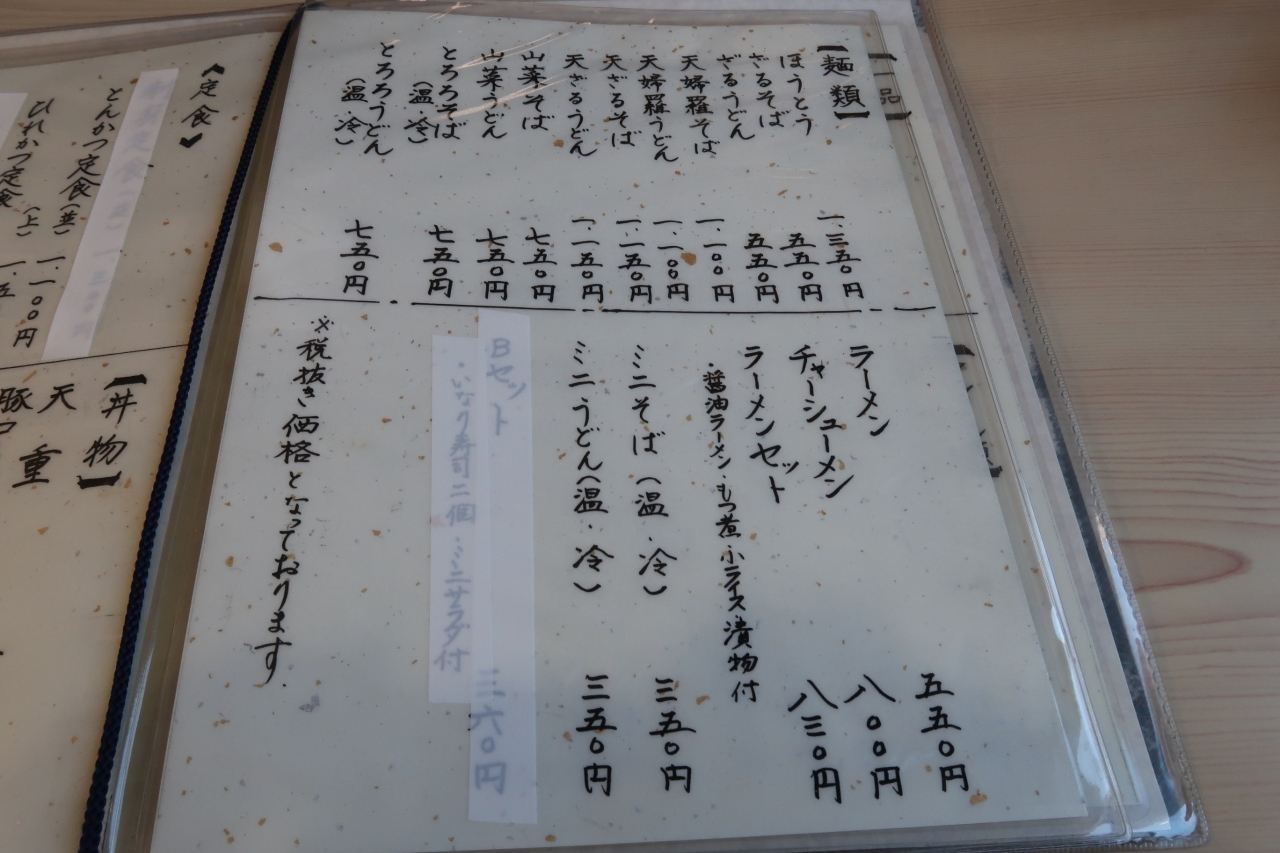 【麺類】
ほうとう 一、三五〇円
ざるそば 五五〇円
ざるうどん 五五〇円
天婦羅そば 一、一〇〇円
天婦羅うどん 一、一〇〇円
天ざるそば 一、一五〇円
天ざるうどん 一、一五〇円
山菜そば 七五〇円
山菜うどん 七五〇円
とろろそば 七五〇円
（温・冷）
とろろうどん 七五〇円
（温・冷）
ラーメン 五五〇円
チャーシューメン 八〇〇円
ラーメンセット 八三〇円
・醤油ラーメン・もつ煮・小ライス・漬物付
ミニそば（温・冷） 三五〇円
ミニうどん（温・冷） 三五〇円
Bセット 三六〇円
・いなり寿司二個・ミニサラダ付
※税抜き価格となっております.
品】
《定食》
とんかつ定食（並） 一、一〇〇円
ひれかつ定食（上） 一、五
【丼物】
天重
豚